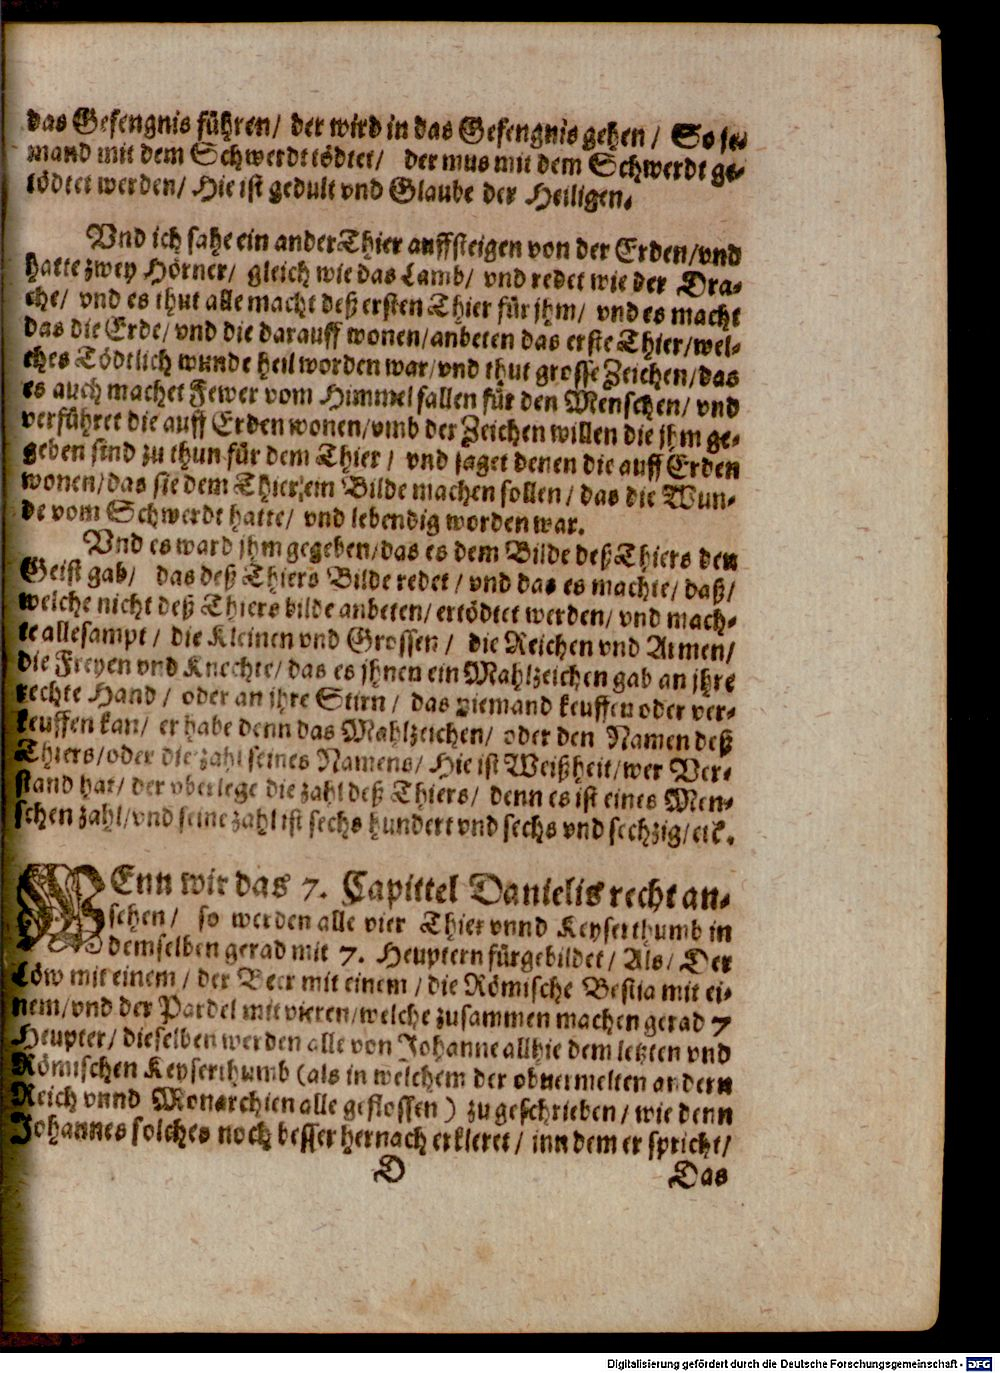 das Gefengnis führen/ der wird in das Gefengnis gehen/ So je-
mand mit dem Schwerdt tödtet/ der mus mit dem Schwerdt ge-
tödtet werden/ Hie ist gedult vnd Glaube der Heiligen.
Vnd ich sahe ein ander Thier auffsteigen von der Erden/vnd
hatte zwey Hörner/ gleich wie das Lamb/ vnd redet wie der Dra-
che/ vnd es thut alle macht deß ersten Thier für jhm/ vnd es macht
das die Erde/vnd die darauff wonen/anbeten das erste Thier/wel-
ches Tödtlich wunde heil worden war/vnd thut grosse Zeichen/das
es auch machet Fewer vom Himmel fallen für den Menschen/ vnd
verführet die auff Erden wonen/vmb der Zeichen willen die jhm ge-
geben sind zu thun für dem Thier/ vnd saget denen die auff Erden
wonen/das sie dem Thier ein Bilde machen sollen/das die Wun-
de vom Schwerdt hatte/ vnd lebendig worden war.
Vnd es ward jhm gegeben/das es dem Bilde deß Thiers den
Geist gab/ das deß Thiers Bilde redet/ vnd das es machte/ daß/
welche nicht deß Thiers bilde anbeten/ ertödtet werden/ vnd mach-
te allesampt/ die Kleinen vnd Grossen/ die Reichen vnd Armen/
die Freyen vnd Knechte/das es jhnen ein Mahlzeichen gab an jhre
rechte Hand/ oder an jhre Stirn/ das niemand keuffen oder ver-
keuffen kan/ er habe denn das Mahlzeichen/ oder den Namen deß
Thiers/oder die zahl seines Namens/ Hie ist Weißheit/wer Ver-
stand hat/ der vberlege die zahl deß Thiers/ denn es ist eines Men-
schen zahl/vnd seine zahl ist sechs hundert vnd sechs vnd sechzig/etc.
WEnn wir das 7. Capittel Danielis recht an-
sehen/ so werden alle vier Thier vnnd Keyserthumb in
demselben gerad mit 7. Heuptern fürgebildet/ Als/ Der
Löw mit einem/ der Beer mit einem/ die Römische Bestia mit ei-
nem/vnd der Pardel mit vieren/welche zusammen machen gerad 7
Heupter/ dieselben werden alle von Johanne allhie dem letzten vnd
Römischen Keyserthumb (als in welchem der obuermelten andern
Reich vnnd Monarchien alle geflossen) zugeschrieben/ wie denn
Johannes solches noch besser hernach erkleret/ inn dem er spricht/
D
Das
Digitalisierung gefördert durch die Deutsche Forschungsgemeinschaft - DFG